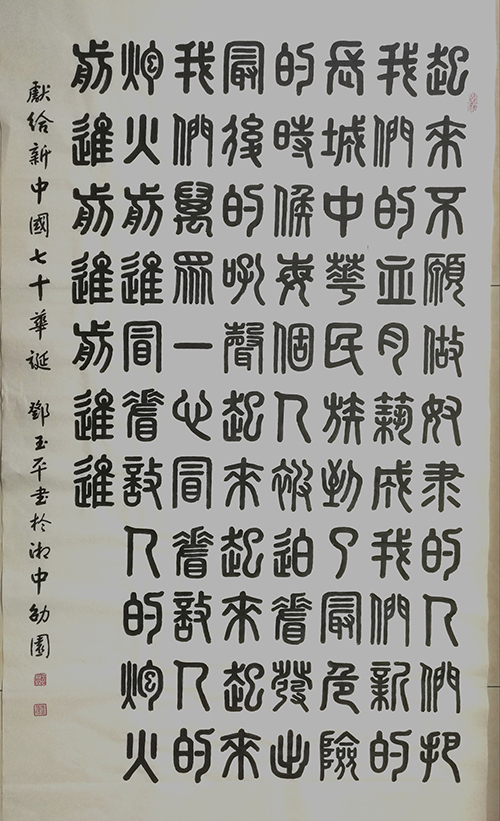 起來不願做奴隶的人們把
我們的血肉築成我們新的
長城中華民族到了最危險
的時候每個人被迫着發出
最後的吼聲起來起來起來
我們萬眾一心冒着敵人的
炮火前進冒着敵人的炮火
前進前進前進進
獻給新中國七十華誕 鄧玉平書於湘中幼園